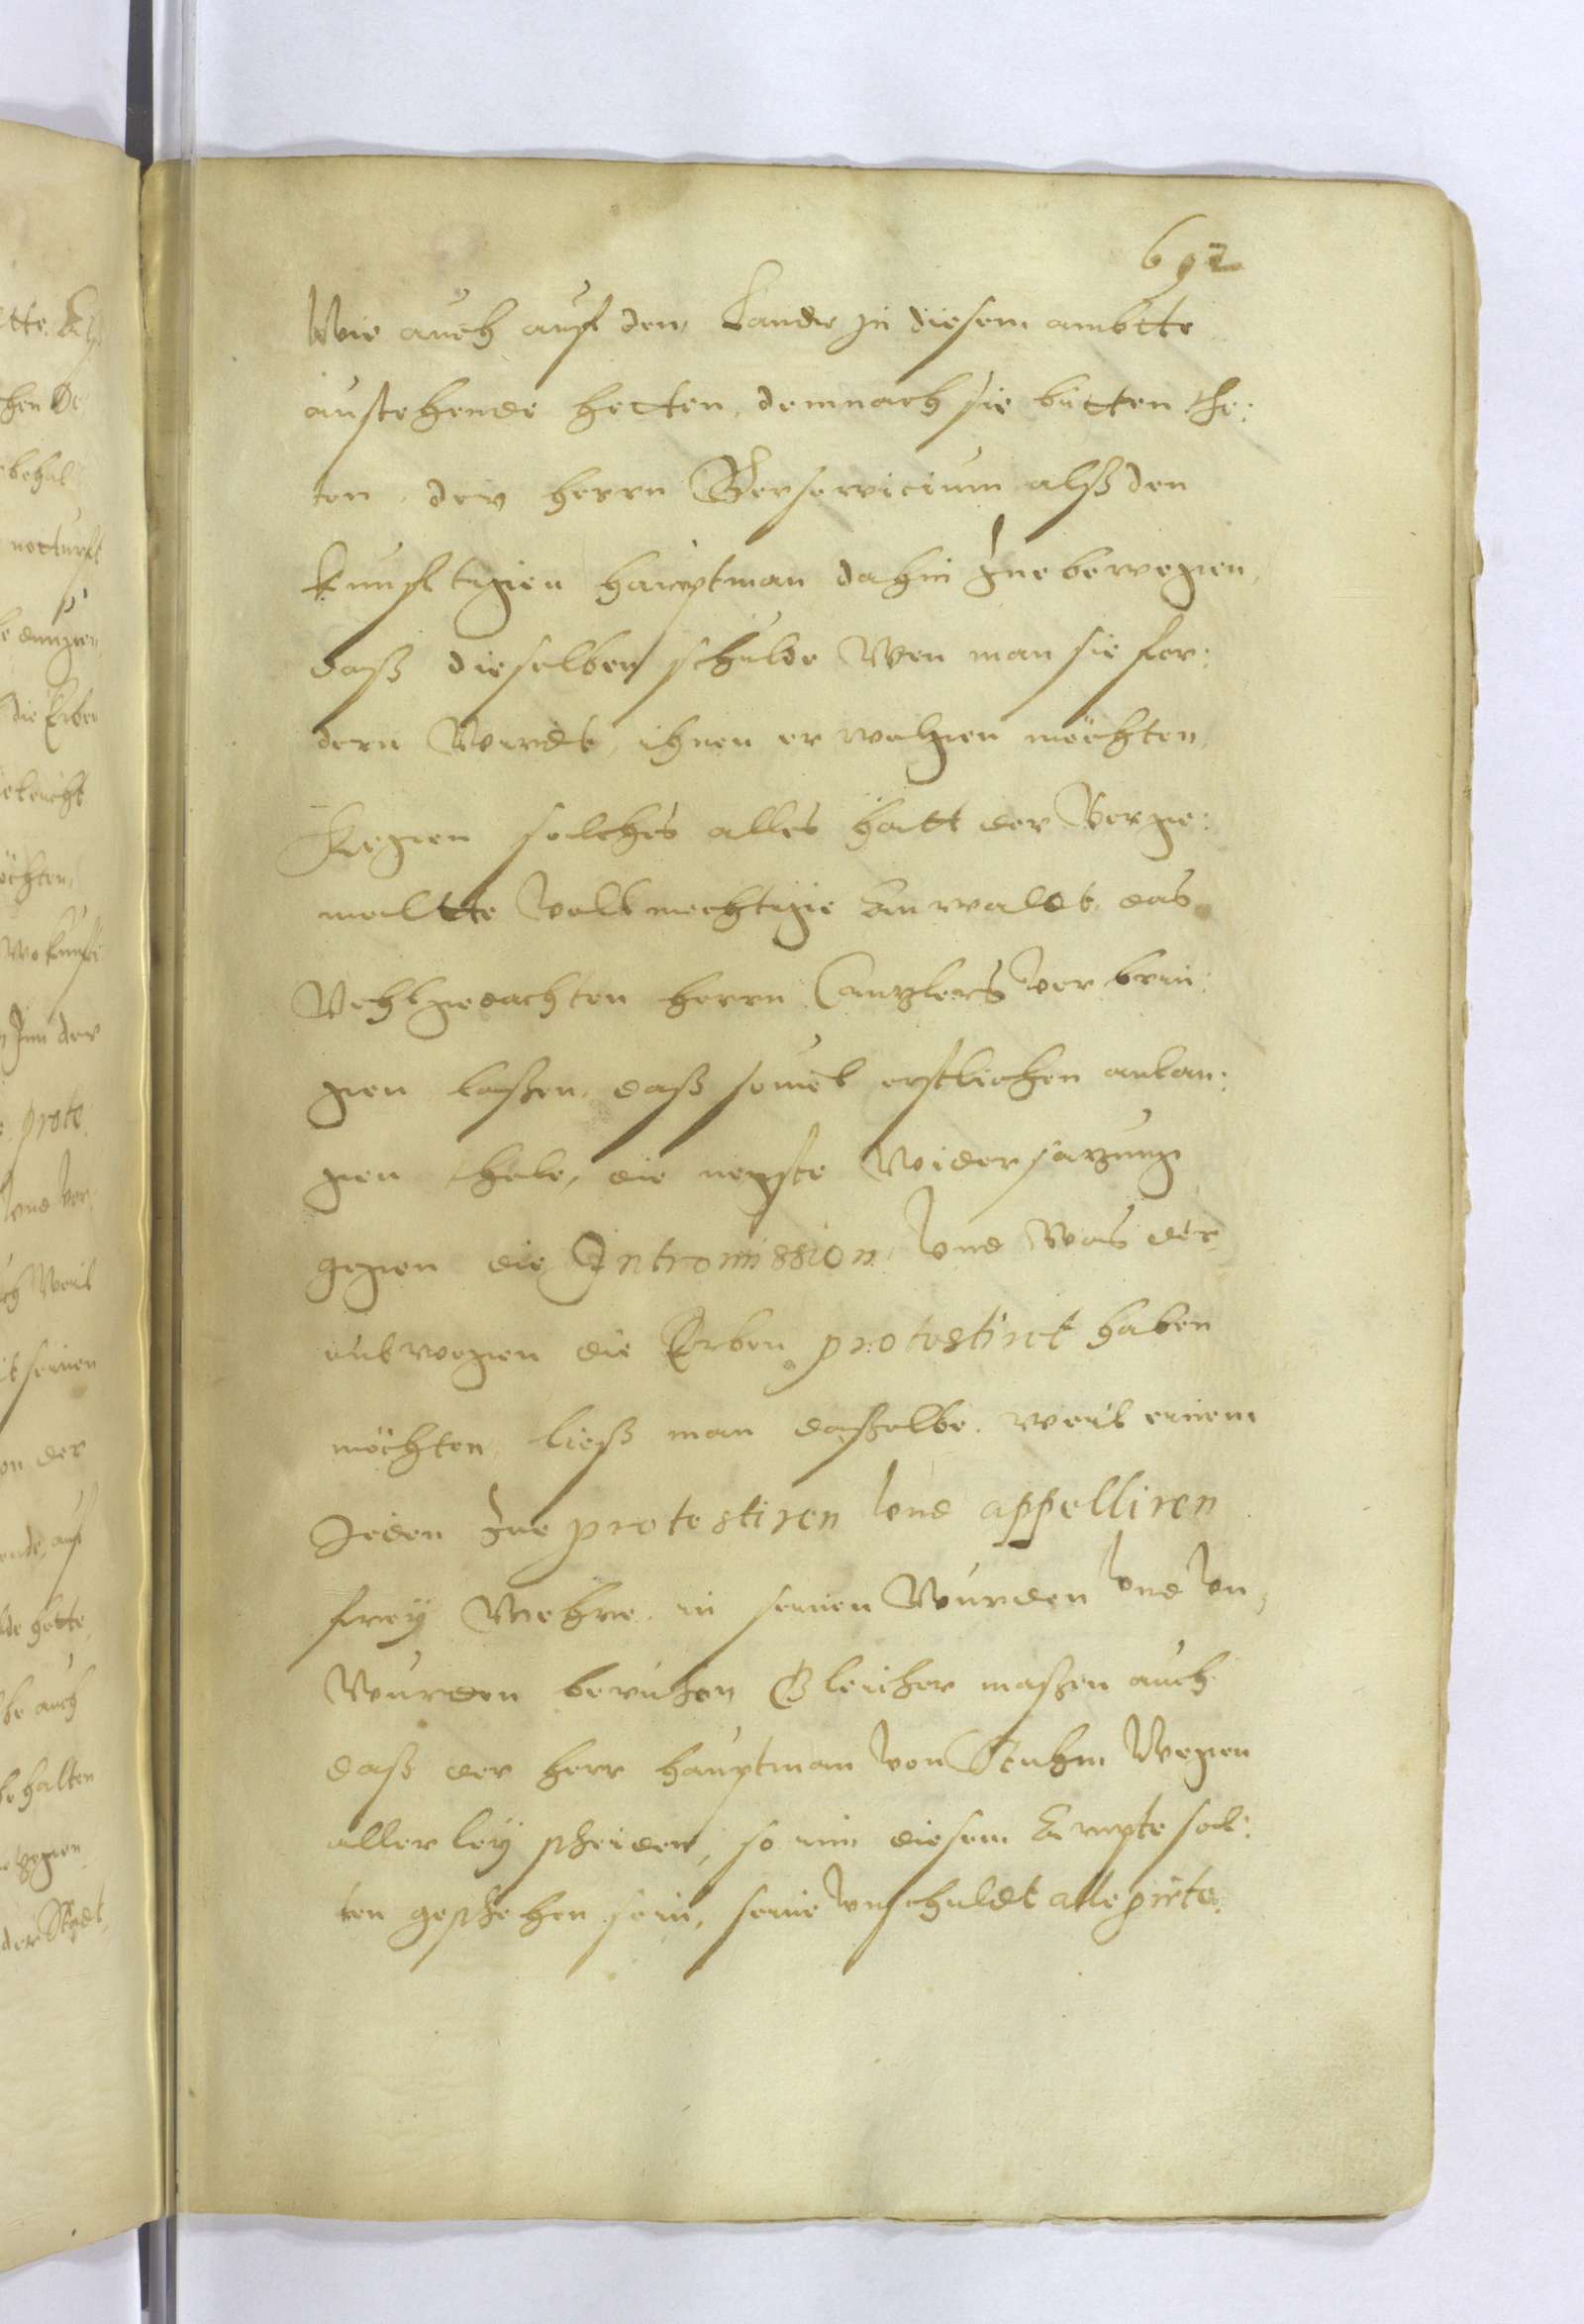 692
Wie auch auf den Lande in diesem ambtte
austehende hetten, demnach sie bitten the:
ten, den herrn alß den
kunfftigen hauptman dahin Zue bewegen,
daß dieselben schulde Wen man sie for:
dern Wirdt, ihnen er wolgen möchten,
Kegen solches alles hatt der Verge:
meltte Volkmechtige Anwaldt, das
Wohlgedachten herrn Canzlers Vor brin:
gen laßen, daß souiel erstlichen anlan:
gen thete, die negste Widersazung
gegen die Intromission Vnd Was der
entwegen die Erben protestiret haben
möchten, ließ man daßelbe, weil einem
Jeden Zue protestiren Vnd appelliren
frey Wehre, in seinen Wurden Vnd Vn,
Wurden beruhen Gleicher maßen auch
daß der herr hauptman Von Stuhm Wegen
allerley scheiden, so inn diesem Ampte sol:
ten geschehen sein, seine Vnschuldt